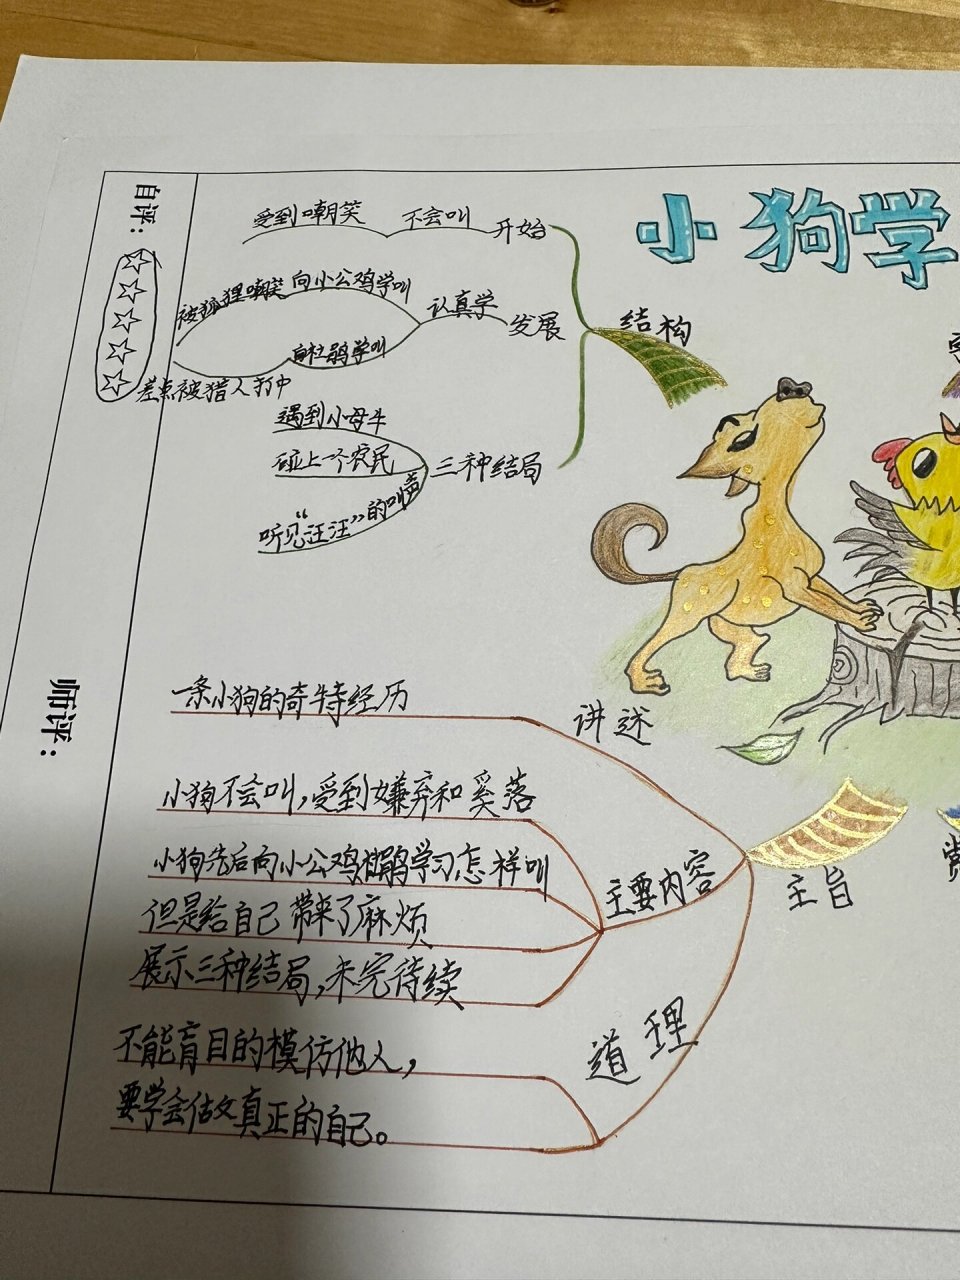 小狗学
自评：☆☆☆☆☆
师评：
结构
开始
不会叫
受到嘲笑
发展
认真学
向小公鸡学叫
被狐狸嘲笑
向杜鹃学叫
差点被猎人打中
三种结局
遇到小母牛
碰上一个农民
听见“汪汪”的叫声
主旨
讲述
一条小狗的奇特经历
主要内容
小狗不会叫，受到嫌弃和奚落
小狗先后向小公鸡杜鹃学习怎样叫
但是给自己带来了麻烦
展示三种结局，未完待续
道理
不能盲目的模仿他人，
要学会做真正的自己。